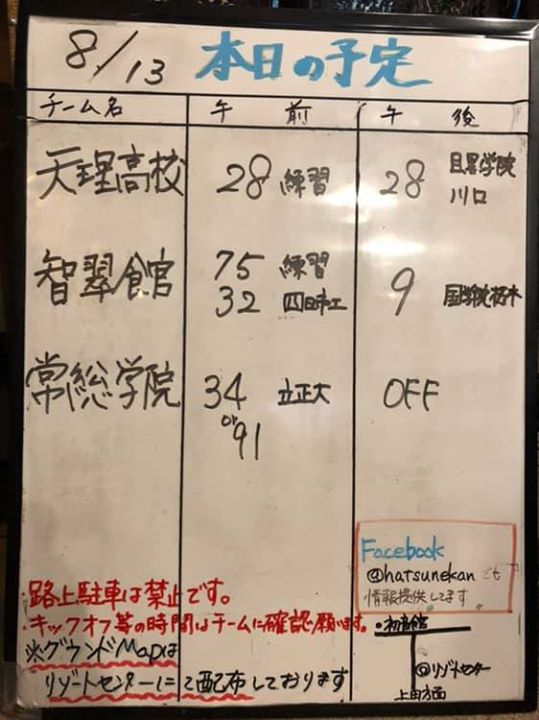 8/13 本日の予定
チーム名 午前 午後
天理高校 28 練習 28 目黒学院
川口
智翠館 75 練習
32 四日市工 9 国学院栃木
常総学院 34 立正大 OFF
or 91
Facebook
@hatsunekan でも
情報提供してます
・路上駐車は禁止です。
・キックオフ等の時間はチームに確認願います。
※グランドMapは
リゾートセンターにて配布しております
・初音館
◎リゾートセンター
上田方面